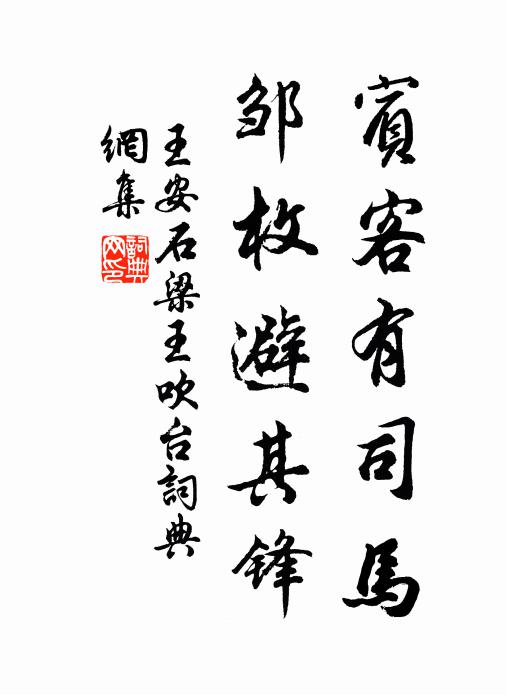 賓客有司馬
邹枚避其锋
王安石梁王吹台詞典
網集
詞典
网印